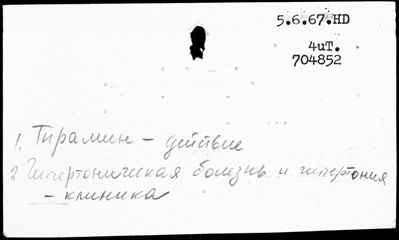 5.6.67.HD
4иТ.
704852
1. Тирамин – действие
2. Гипертоническая болезнь и гипертония
– клиника